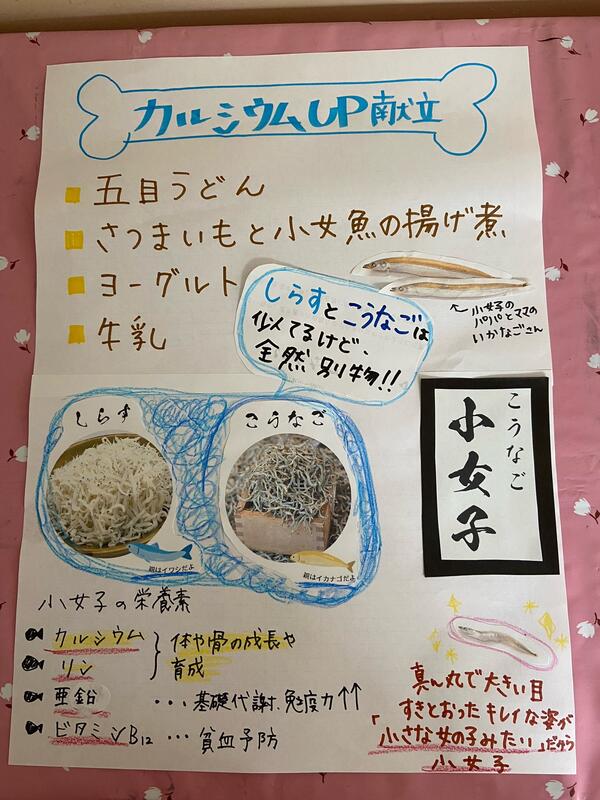 カルシウムUP献立
五目うどん
さつまいもと小女魚の揚げ煮
ヨーグルト
牛乳
小女子の
パパとママの
いかなごさん
しらすとこうなごは
似てるけど、
全然別物!!
しらす
親はイワシだよ
こうなご
親はイカナゴだよ
こうなご
小女子
小女子の栄養素
カルシウム
リン
体や骨の成長や
育成
亜鉛 ・・・ 基礎代謝、免疫力↑↑
ビタミンB12 ・・・ 貧血予防
真ん丸で大きい目
すきとおったキレイな姿が
「小さな女の子みたい」だから
小女子